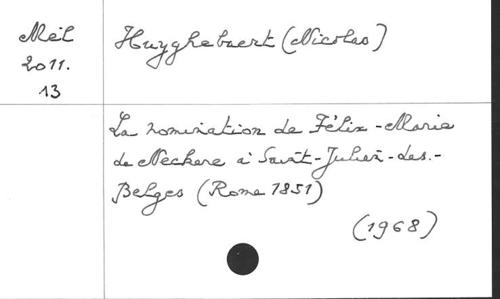 Mél
2011.
13
Huyghebaert (Nicolas)
La nomination de Félix-Marie
de Neckere à Saint-Julien-des.-
Belges (Rome 1851)
(1968)